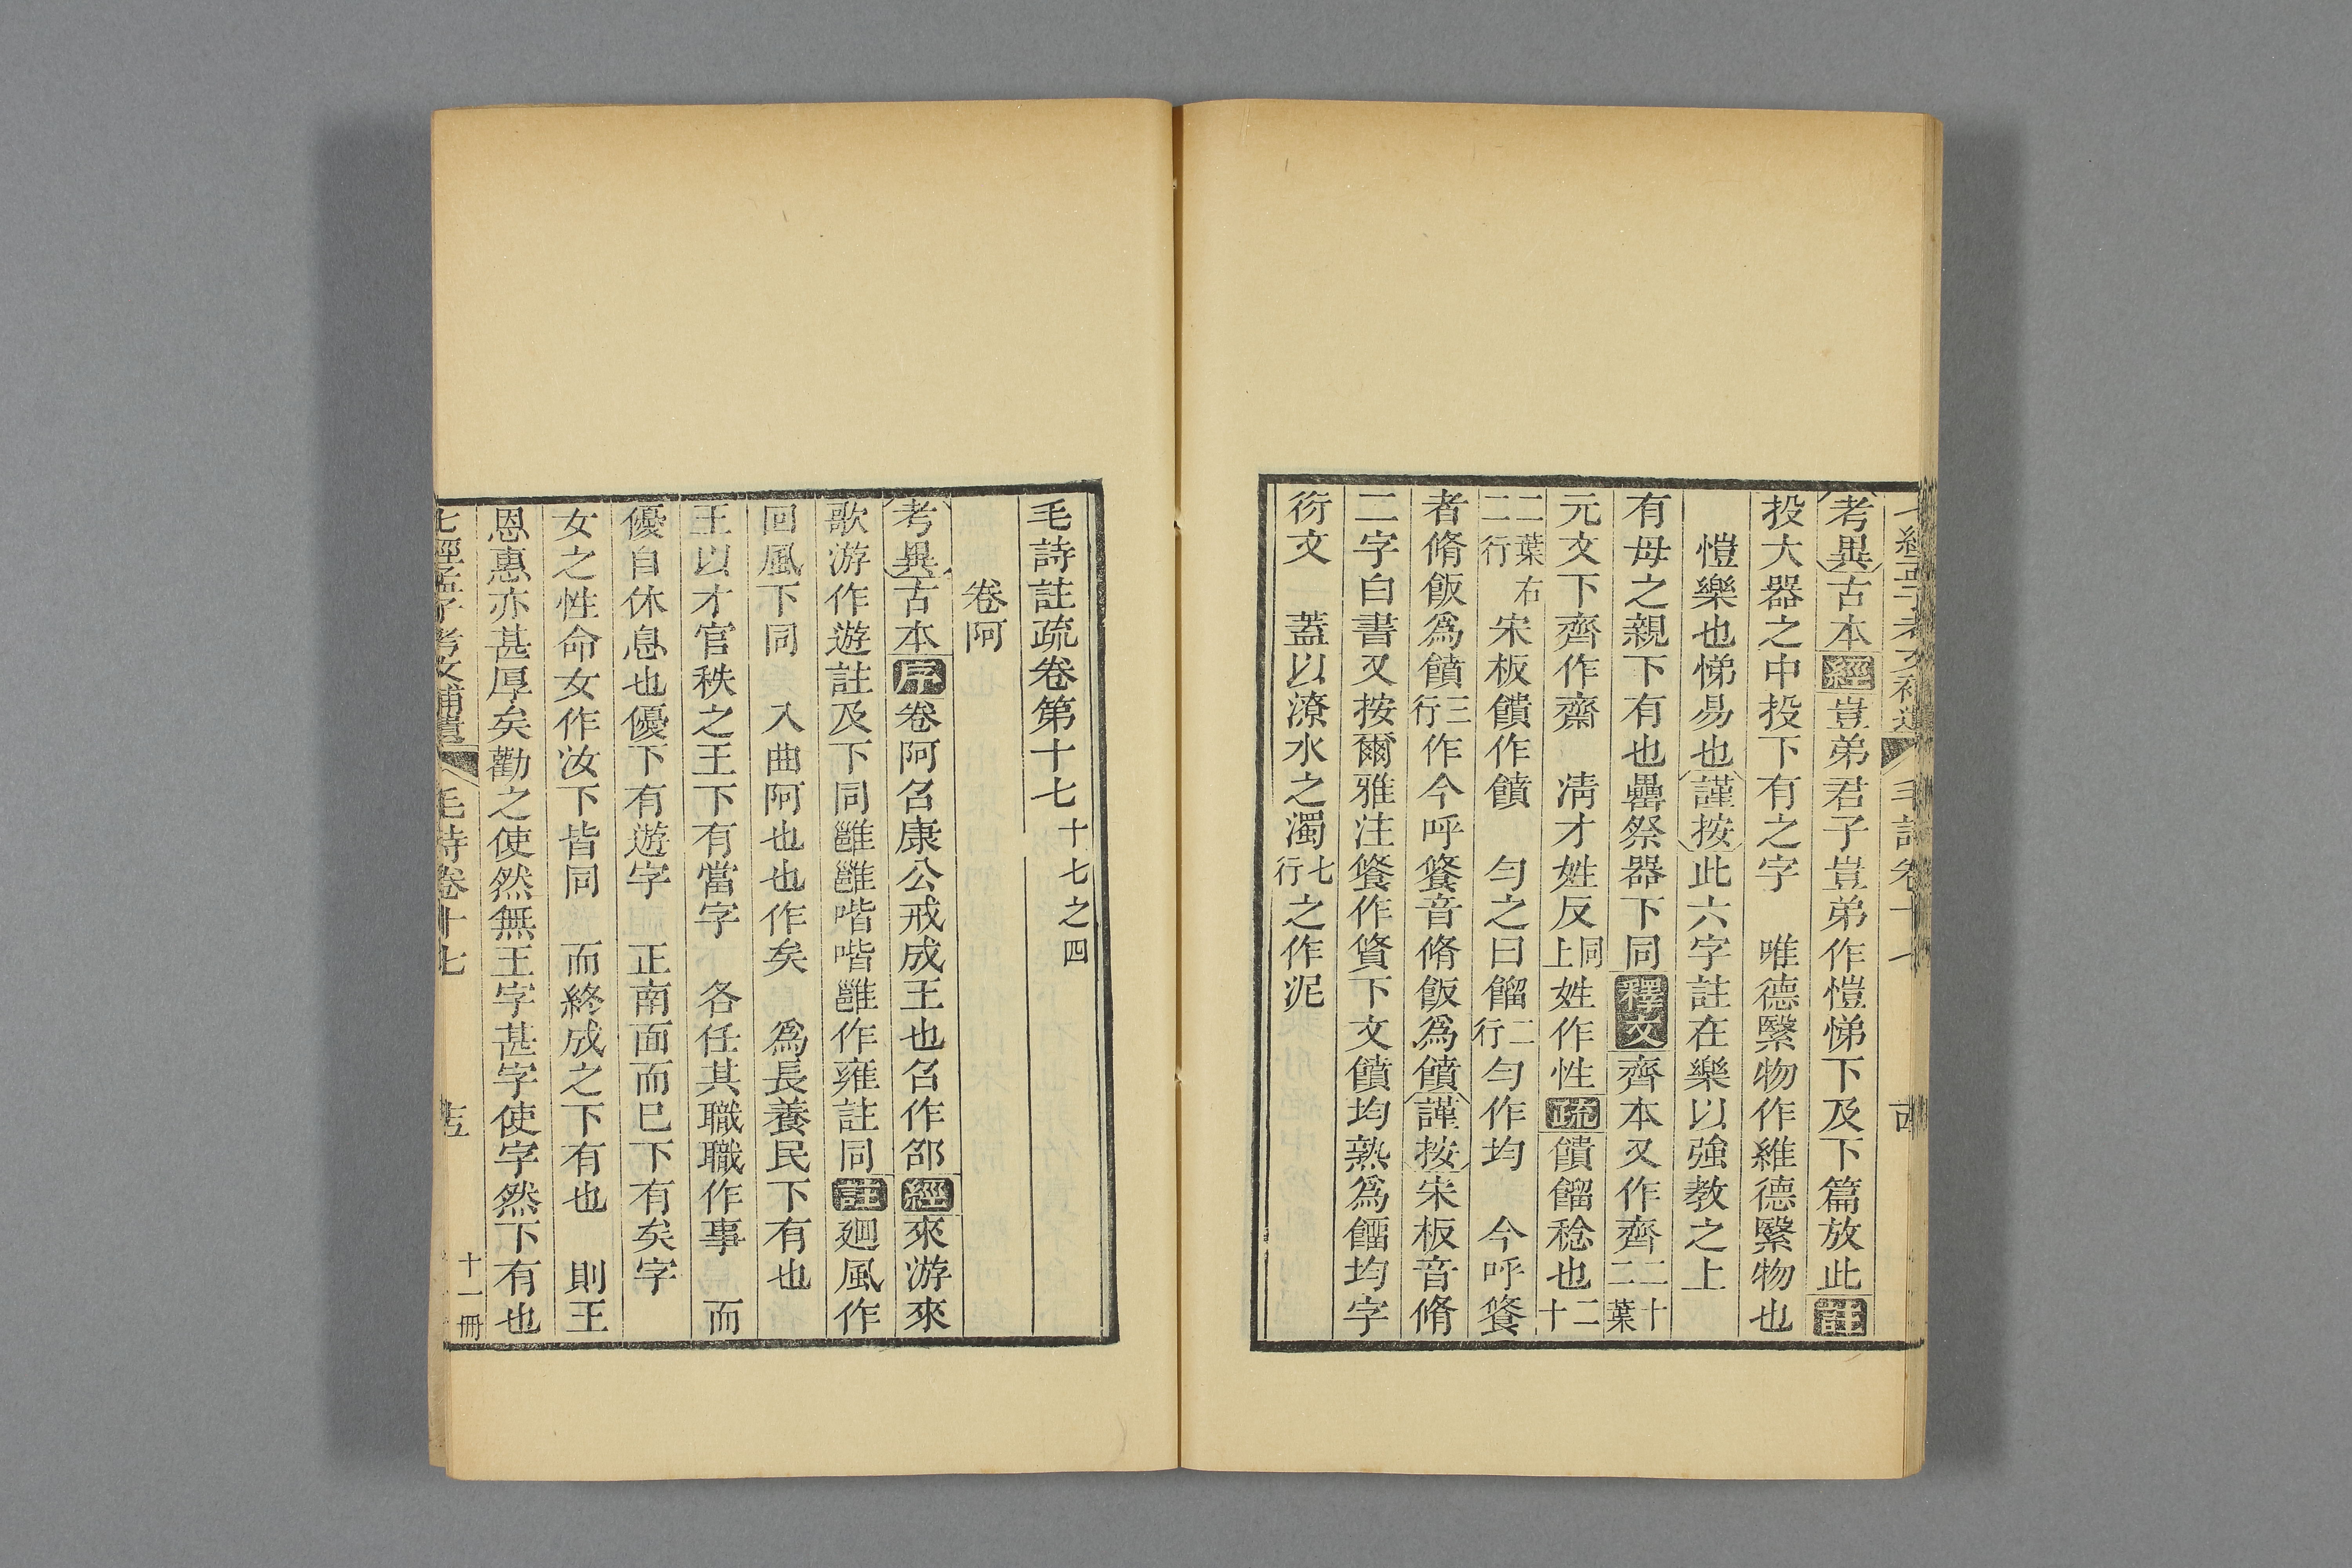 七經孟子考文補遺 毛詩卷十七
考異古本經豈弟君子豈弟作愷悌下及下篇放此註
投大器之中投下有之字 唯德繄物作維德繄物也
愷樂也悌易也謹按此六字註在樂以強教之上
有母之親下有也罍祭器下同釋文齊本又作齊二十二葉
元文下齊作齋 淸才姓反同上姓作性疏饙餾稔也二十
二葉右二行宋板饋作饙 匀之曰餾二行匀作均 今呼餐
者脩飯爲饙三行作今呼餐音脩飯爲饙謹按宋板音脩
二字白書又按爾雅注餐作䬸下文饙均熟爲餾均字
衍文 蓋以潦水之濁七行之作泥
毛詩註疏卷第十七 十七之四
卷阿
考異古本序卷阿召康公戒成王也召作邵經來游來
歌游作遊註及下同雝雝喈喈雝作雍註同註廻風作
回風下同 入曲阿也也作矣 爲長養民下有也
王以才官秩之王下有當字 各任其職職作事 而
優自休息也優下有遊字 正南面而已下有矣字
女之性命女作汝下皆同 而終成之下有也 則王
恩惠亦甚厚矣勸之使然無王字甚字使字然下有也
七經孟子考文補遺 毛詩卷十七 十一冊